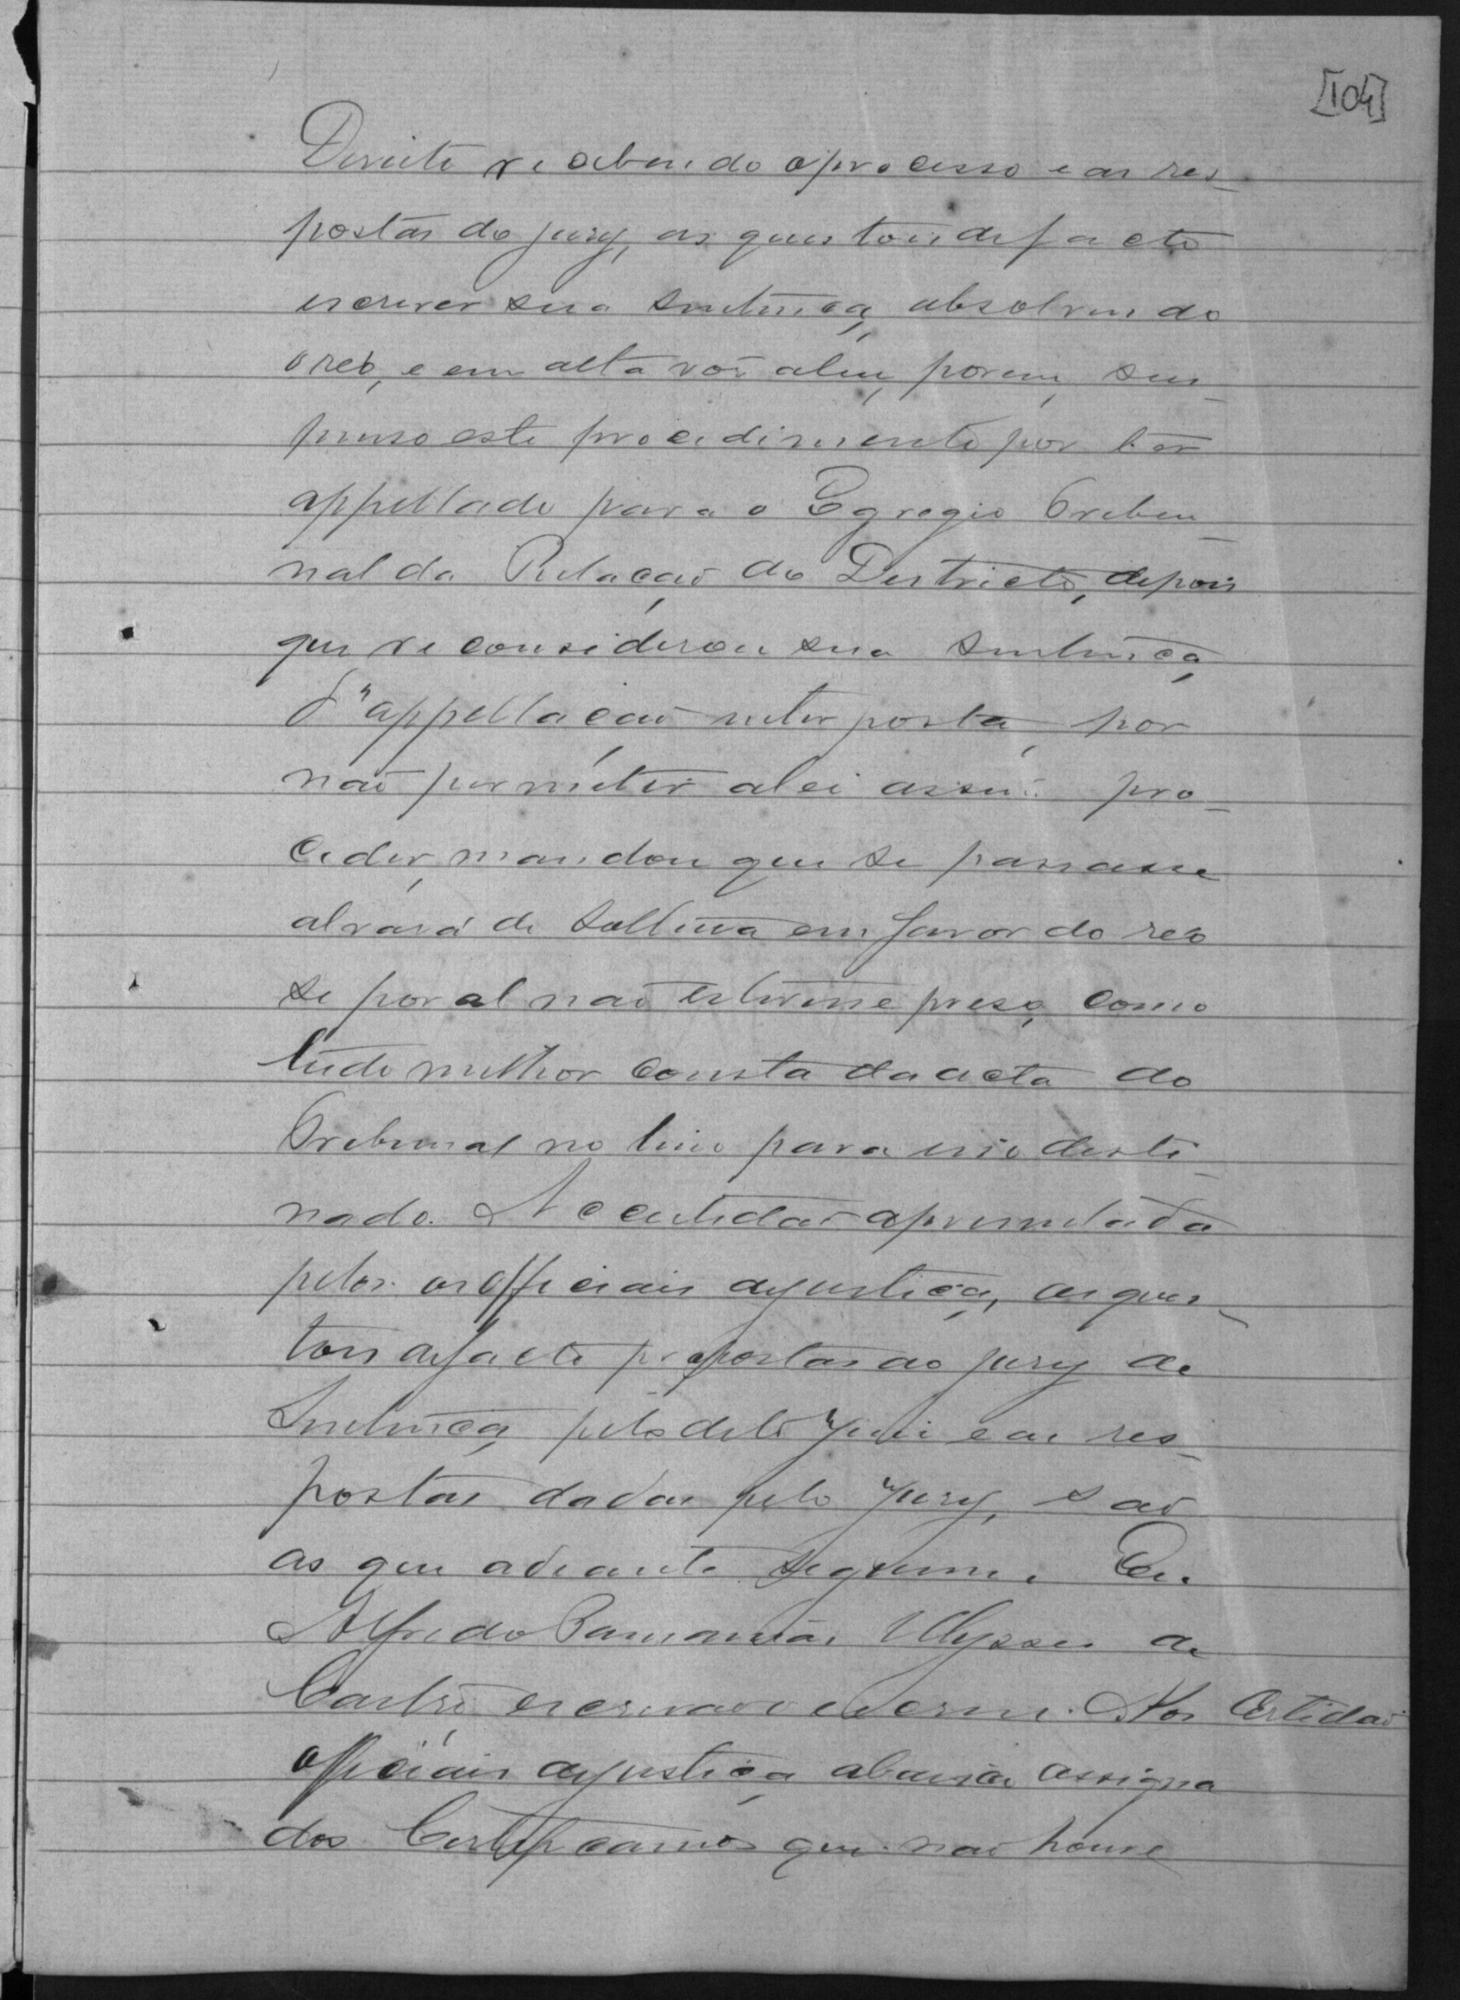 [104]
Dereito recebendo o processo e as res-
postas do jury, as questois de facto
escrever sua sentença, absolvendo
o reo, e em alta voz a leu, porem, sus-
penso este procedimento por ter
appellado para o Egregio Trebu-
nal da Relação do Destricto, depois
que reconsiderou sua sentença
d'appellação interposta, por
não permetir a lei assim pro-
ceder, mandou que se passasse
alvará de soltura em favor do reo
se por al não estivesse preso, como
tudo melhor consta da acta do
Trebunal no livro para isso desti-
nado. A certidão apresentada
pelos os officiais de justiça, as ques-
tois de facto propostas ao jury de
Sentença pelo dito Juiz e as res-
postas dadas pelo Jury, são
as que adeante seguem. Eu
Alfredo Ulysses de
Castro escrivão escrevi. Nós Certidão
officiais de justiça abaixo assigna
dos Certificamos que não houve